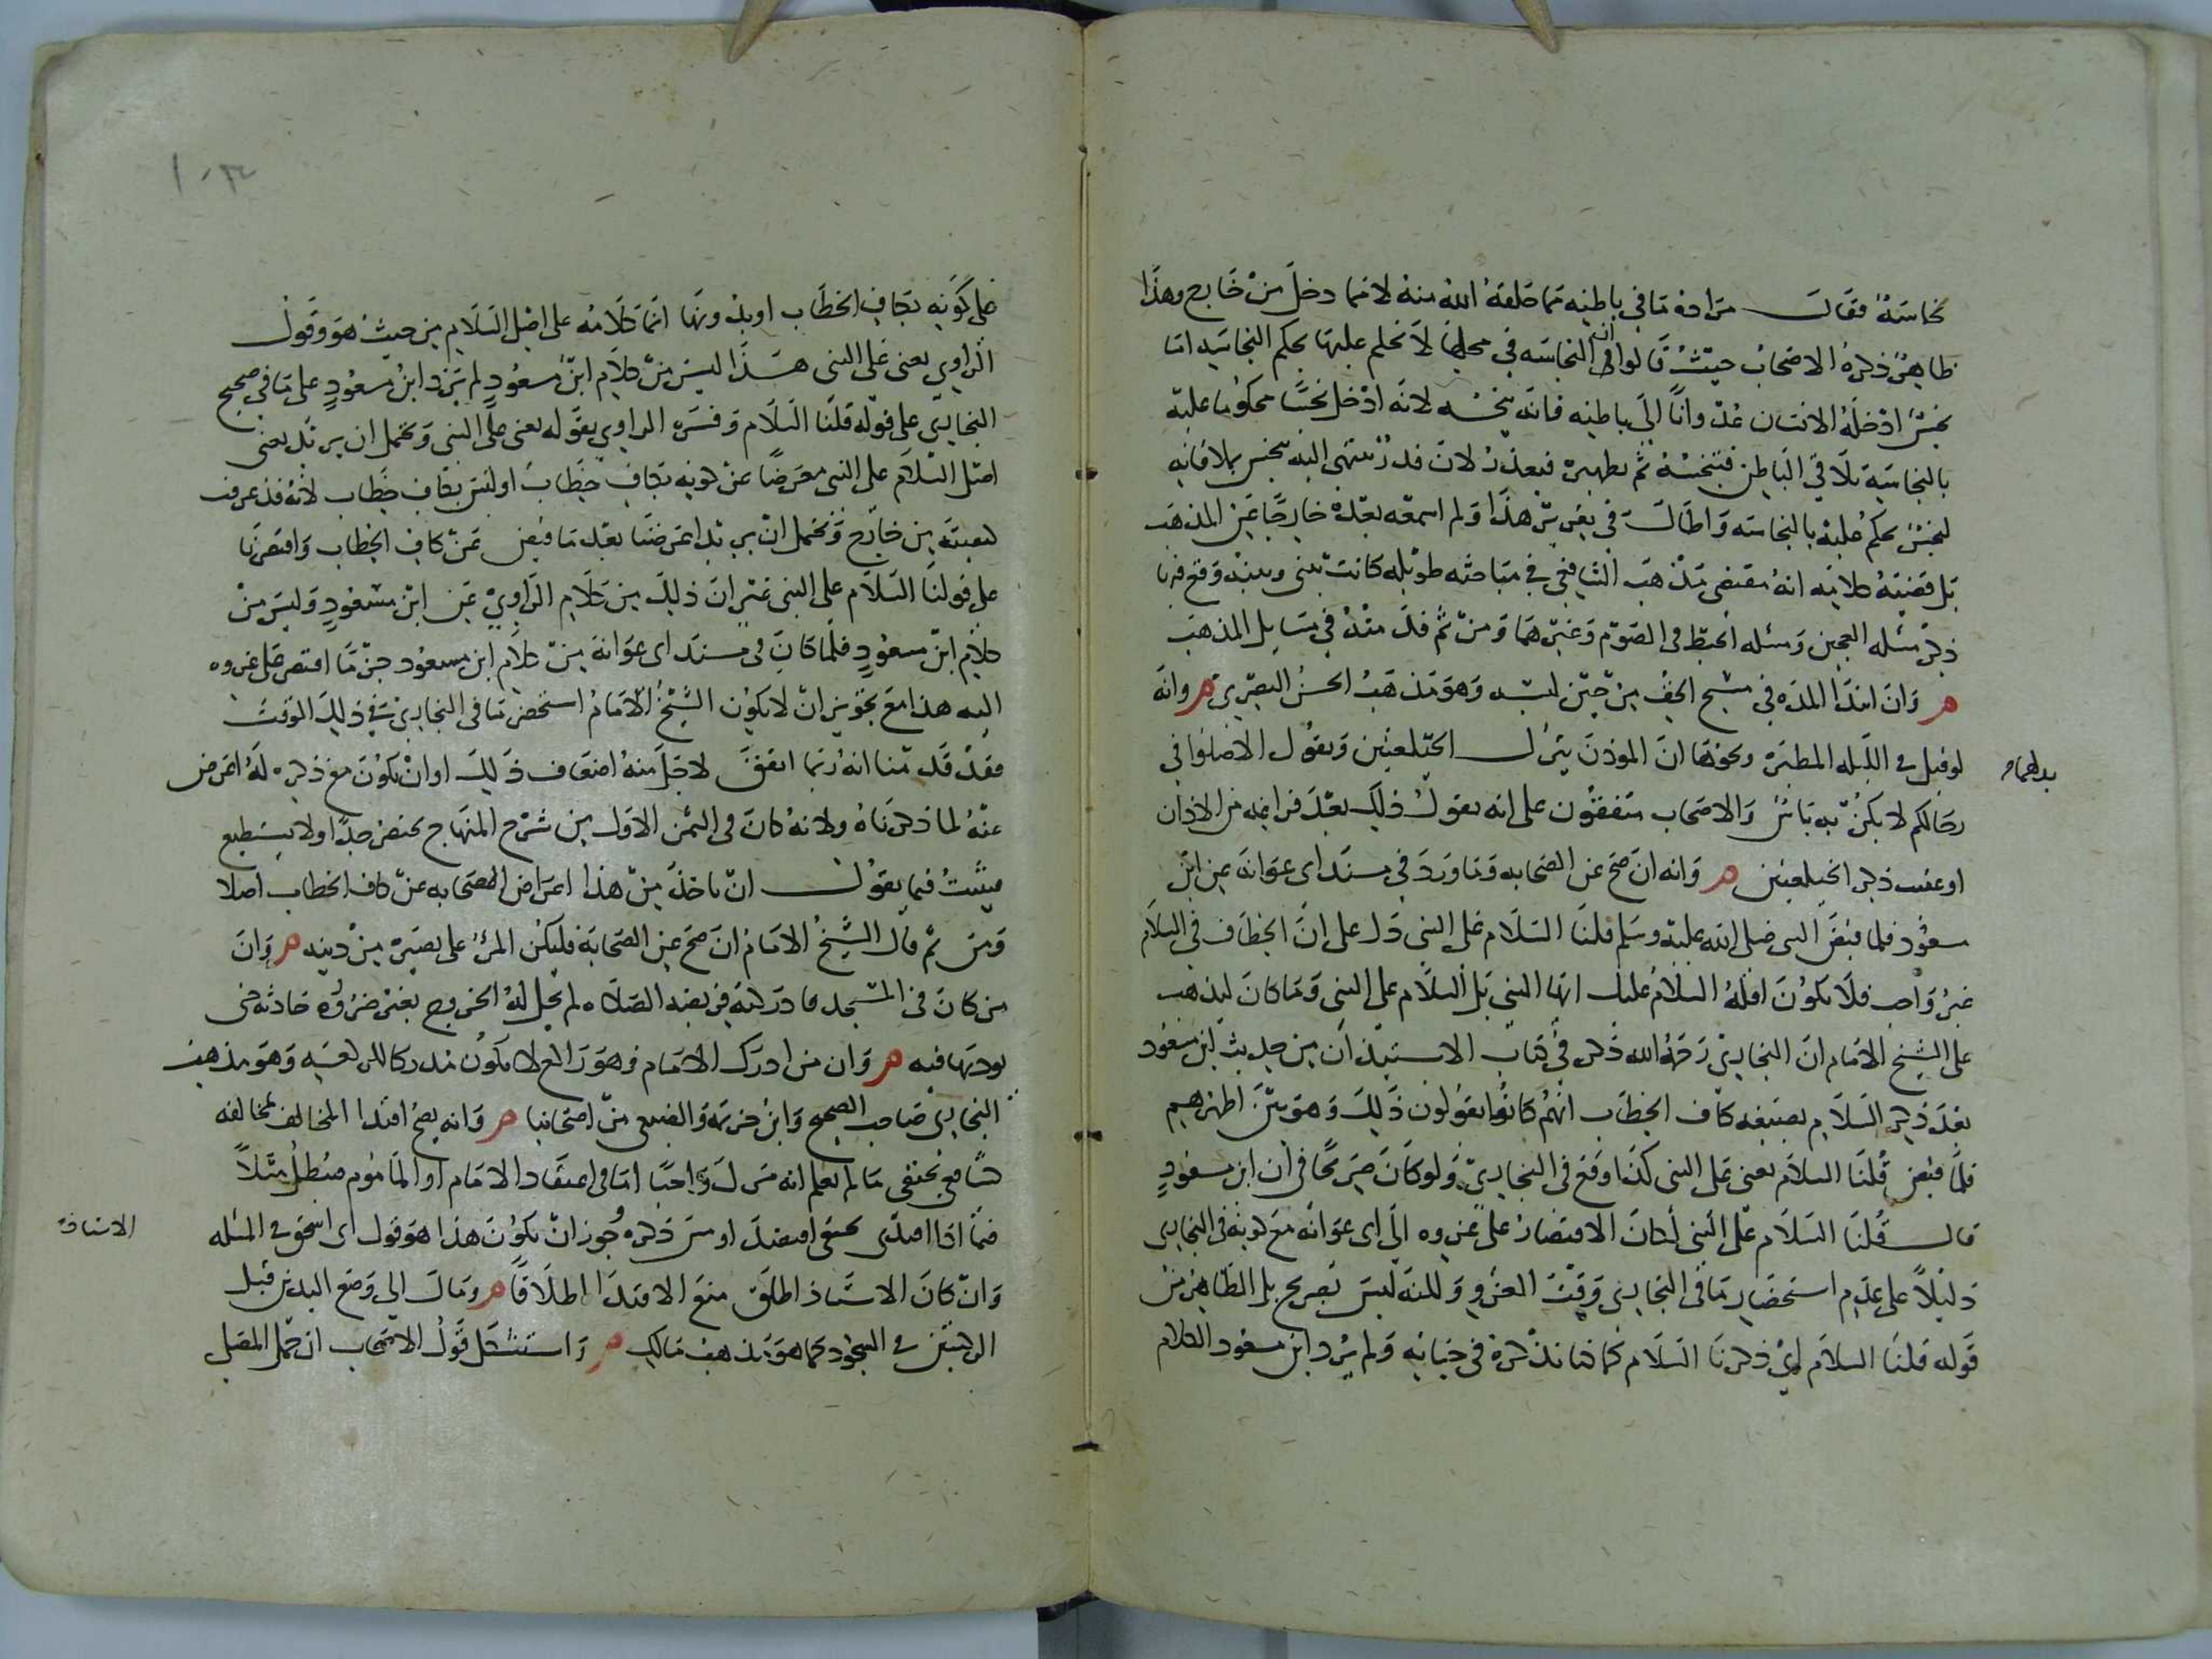 نجاسة فقالت مراده ما في باطنه مما خلقه الله منه لا مما دخل من خارج وهذا
ظاهر ذكره الاصحاب حيث قالوا ان النجاسة في محلها لا نحكم عليها بحكم النجاسة اما
نجس ادخله الانسان عدوانا الى باطنه فانه ينجسه لانه ادخل نجسا محكوما عليه
بالنجاسة يلاقي الباطن فتنجسه ثم تطهيره فبعذر لان قدر ينتهي اليه ينجس بملاقاته
لنجس يحكم عليه بالنجاسة واطالت في تقرير هذا ولم اسمعه بعده خارجا عن المذهب
بل قضية كلامه انه مقتضى مذهب الشافعي في مباحثه طويلة كانت بيني وبينه وقع فيها
ذكر مسئلة العجين ومسئلة الخيط في الصوم وغيرهما ومن ثم قد منه في مسايل المذهب
ه وان ابتدا المدة في مسح الخف من حين لبسه وهو مذهب الحسن البصري ه وانه
لو قيل في الليلة المطيرة ونحوها ان الموذن يترك الحيعلتين ويقول الا صلوا في
بدلهما
رحالكم لا يكن به باس والاصحاب متفقون على انه يقول ذلك بعد فراغه من الاذان
او عقيب ذكر الحيعلتين ه وانه ان صح عن الصحابة وما ورد في مسند ابي عوانة عن ابن
مسعود فلما قبض النبي صلى الله عليه وسلم قلنا السلام على النبي دل على ان الخطاب في السلام
غير واجب فلا يكون اقله السلام عليك ايها النبي بل السلام على النبي وما كان ليذهب
على الشيخ الامام ان البخاري رحمه الله ذكر في كتاب الاستيذان من حديث ابن مسعود
بعد ذكر السلام بصيغة كاف الخطاب انهم كانوا يقولون ذلك وهو بين اظهرهم
فلما قبض قلنا السلام يعني على النبي كذا وقع في البخاري ولو كان صريحا في ان ابن مسعود
قال قلنا السلام على النبي لكان الاقتصار على عزوه الى ابي عوانة مع كونه في البخاري
دليلا على عدم استحضار ما في البخاري وقت العزو ولكنه ليس بصريح بل الظاهر من
قوله قلنا السلام اي ذكرنا السلام كما كنا نذكره في حياته ولم يرد ابن مسعود الكلام
على كونه بكاف الخطاب او بدونها انما كلامه على اصل السلام من حيث هو وقول
الراوي يعني على النبي هذا ليس من كلام ابن مسعود لم يزد ابن مسعود على ما في صحيح
البخاري على قوله قلنا السلام وفسره الراوي بقوله يعني على النبي ويحتمل ان يريد يعني
اصل السلام على النبي معرضا عن كونه بكاف خطاب او ليس بكاف خطاب لانه قد عرف
كيفيته من خارج ويحتمل ان يريد اعرضنا بعد ما قبض عن كاف الخطاب واقتصرنا
على قولنا السلام على النبي غير ان ذلك من كلام الراوي عن ابن مسعود وليس من
كلام ابن مسعود فلما كان في مسند ابي عوانة من كلام ابن مسعود جزما اقتصر على عزوه
اليه هذا مع تجويز ان لا يكون الشيخ الامام استحضر ما في البخاري في ذلك الوقت
فقد قدمنا انه ربما اتفق لاجل منه اضعاف ذلك او ان يكون مع ذكره له اعرض
عنه لما ذكرناه ولانه كان في الثمن الاول من شرح المنهاج يختصر جدا ولا يستطيع
ميثبت فيما يقول ان ياخذ من هذا اعراض الصحابة عن كاف الخطاب اصلا
ومن ثم قال الشيخ الامام ان صح عن الصحابة فليكن المرء على بصيرة من دينه ه وان
من كان في المسجد فادركته فريضة الصلاة لم يحل له الخروج بغير ضرورة حادثة حتى
يوديها فيه ه وان من ادرك الامام وهو راكع لا يكون مدركا للركعة وهو مذهب
البخاري صاحب الصحيح وابن خزيمة والضبعي من اصحابنا ه وانه يصح اقتدا المخالف لمخالفه
كشافعي بحنفي ما لم يعلم انه ترك واجبا اما في اعتقاد الامام او الماموم مبطل مثلا
فيما اذا اقتدى بحنفي افتصد او مس ذكره وجوز ان يكون هذا هو قول ابي اسحق في المسئلة
الاستاذ
وان كان الاستاذ اطلق منع الاقتدا اطلاقا ه ومال الى وضع اليدين قبل
الركبتين في السجود كما هو مذهب مالك ه واستشكل قول الاصحاب ان حمل المصلي